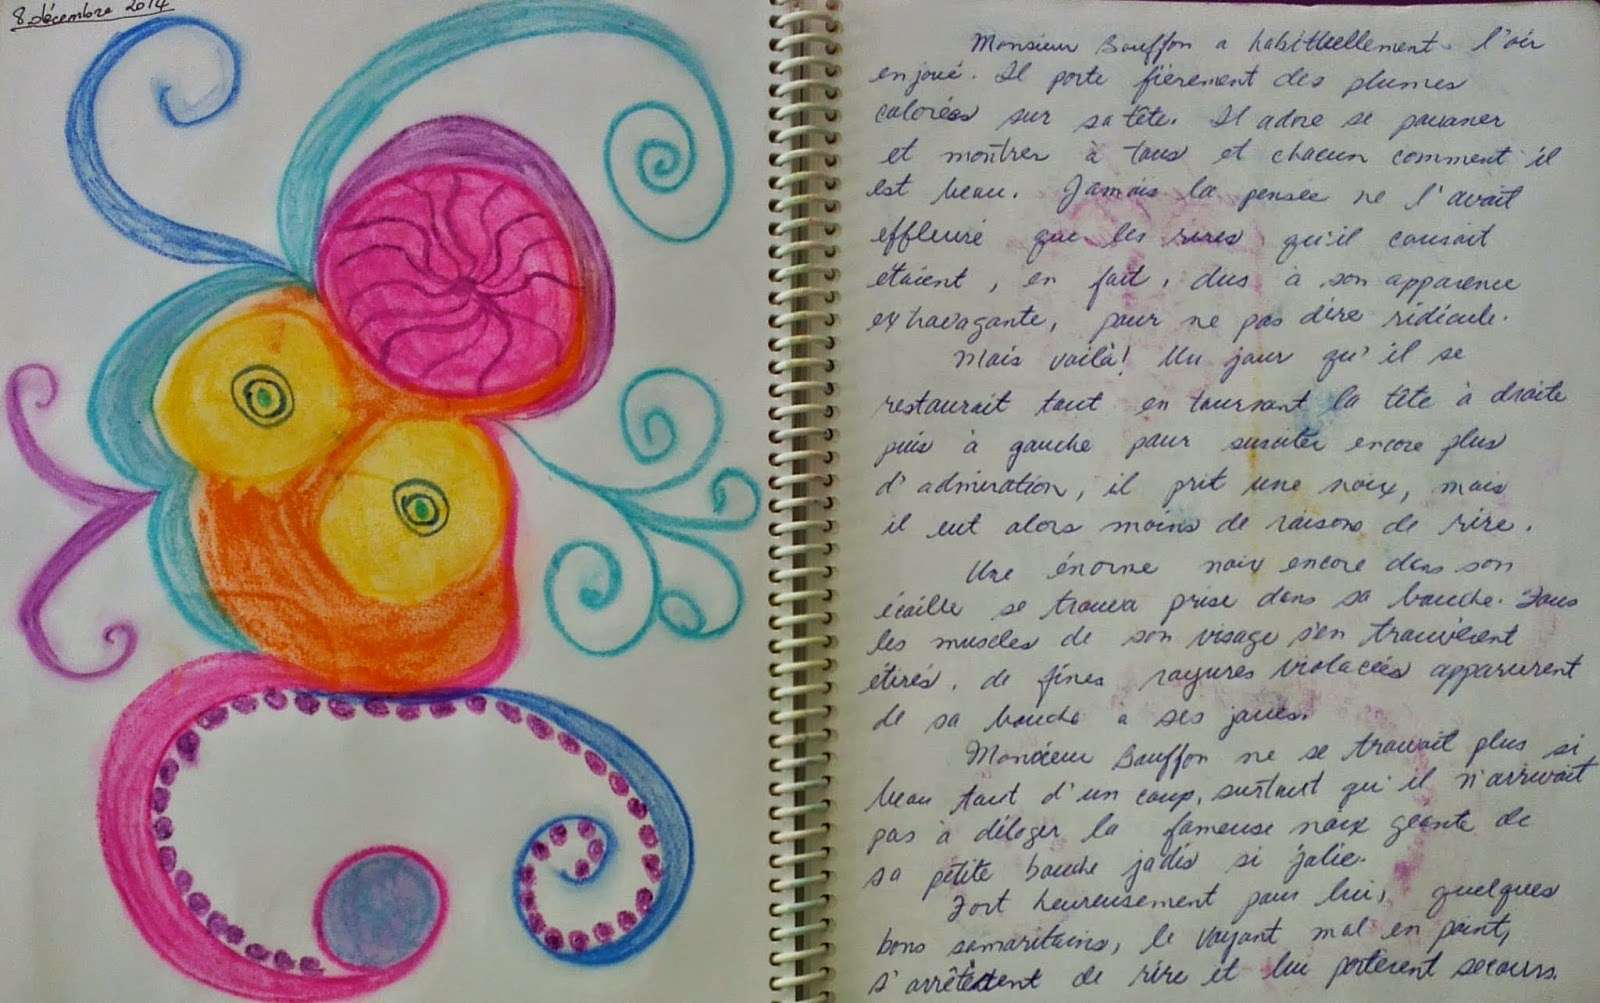 8 décembre 2014
Monsieur Bouffon a habituellement l'air
enjoué. Il porte fièrement des plumes
colorées sur sa tête. Il adore se pavaner
et montrer à tous et chacun comment il
est beau. Jamais la pensée ne l'avait
effleuré que les rires qu'il causait
étaient, en fait, dus à son apparence
extravagante, pour ne pas dire ridicule.
Mais voilà! Un jour qu'il se
restaurait tout en tournant la tête à droite
puis à gauche pour susciter encore plus
d'admiration, il prit une noix, mais
il eut alors moins de raisons de rire.
Une énorme noix encore dans son
écaille se trouva prise dans sa bouche. Tous
les muscles de son visage s'en trouvèrent
étirés, de fines rayures violacées apparurent
de sa bouche à ses joues.
Monsieur Bouffon ne se trouvait plus si
beau tout d'un coup, surtout qu'il n'arrivait
pas à déloger la fameuse noix géante de
sa petite bouche jadis si jolie.
Fort heureusement pour lui, quelques
bons samaritains, le voyant mal en point,
s'arrêtèrent de rire et lui portèrent secours.